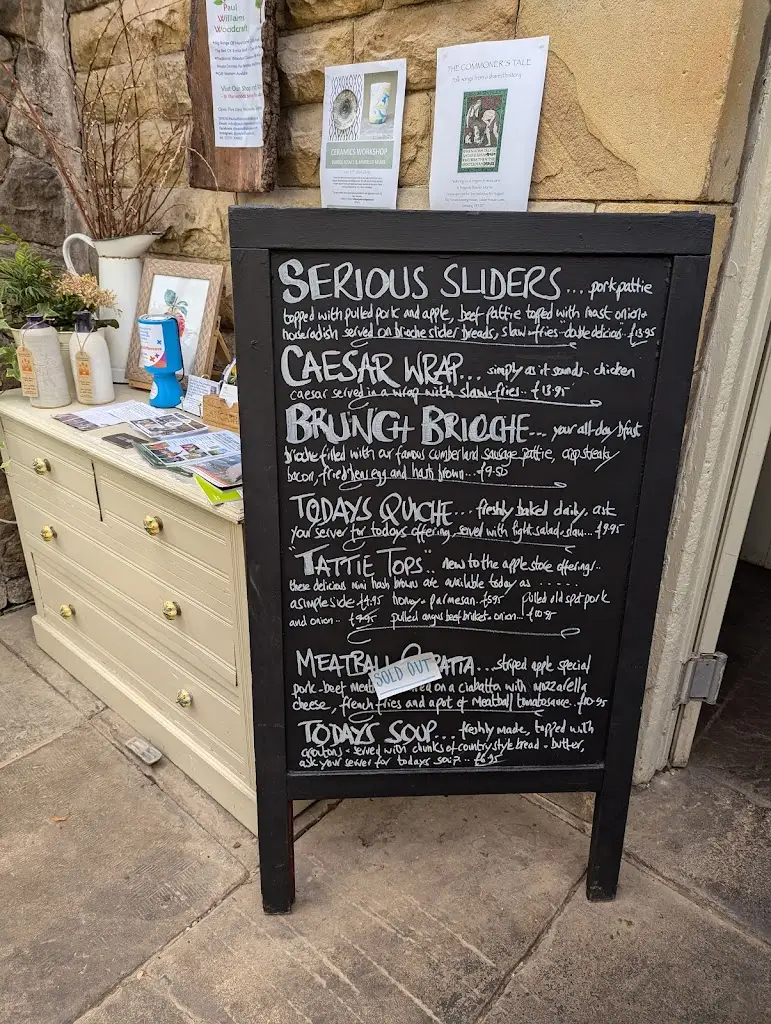 Paul
William
Woodcraft
Visit Our Shop
CERAMICS WORKSHOP
THE COMMONER'S TALE
SERIOUS SLIDERS... pork pattie
topped with pulled pork and apple, beef pattie topped with roast onion +
horseradish served on brioche slider breads, slaw + fries - double delicious.. £13.95
CAESAR WRAP... simply as it sounds.. chicken
caesar served in a wrap with slaw + fries.. £13.95
BRUNCH BRIOCHE... your all-day b'fast
brioche filled with our famous cumberland sausage pattie, crisp streaky
bacon, fried hens egg and hash brown... £9.50
TODAYS QUICHE... freshly baked daily, ask
your server for todays offering, served with light salad + slaw... £9.95
"TATTIE TOPS".. new to the apple store offering..
these delicious mini hash browns are available today as ......
a simple side £4.95 honey + parmesan.. £5.95 pulled old spot pork
and onion.. £9.95 pulled angus beef brisket + onion.. £10.95
MEATBALL SOLD OUT ... striped apple special
pork + beef on a ciabatta with mozzarella
cheese, french fries and a pot of Meatball tomato sauce. £10.95
TODAYS SOUP... freshly made, topped with
croutons + served with chunks of country style bread + butter,
ask your server for todays soup.. £6.95